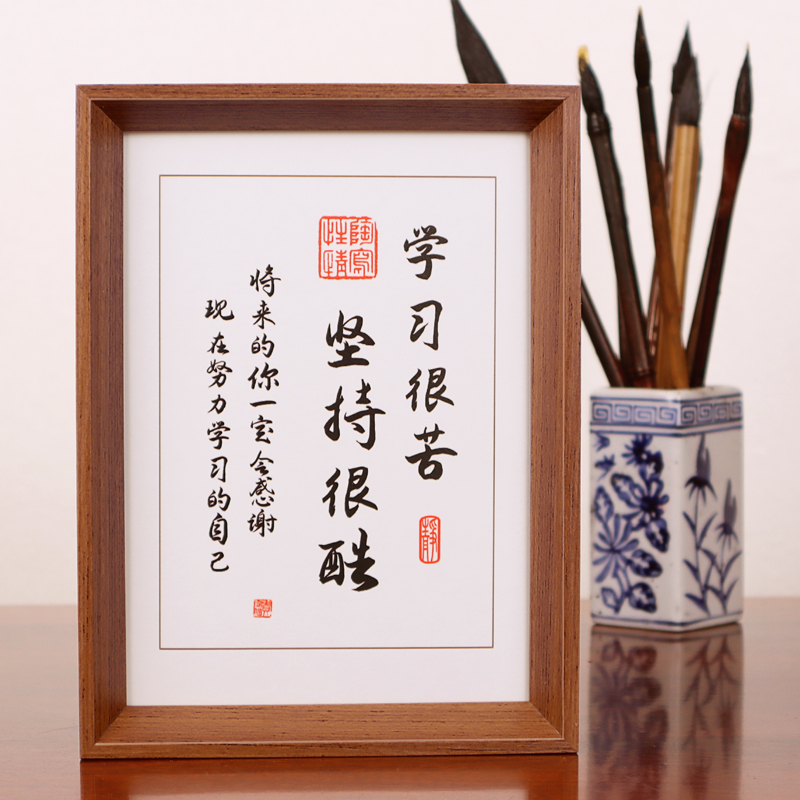 学习很苦
静
陶写性情
坚持很酷
将来的你一定会感谢
现在努力学习的自己